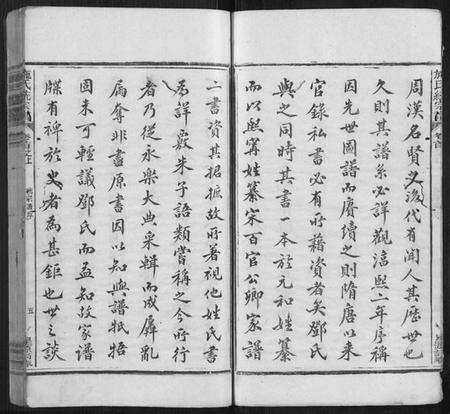 周漢名賢之後代有聞人其歷世也
久則其譜系必詳觀淳熙二年序稱
因先世圖譜而賡續之則隋唐以來
官錄私書必有所藉資者矣鄧氏
與之同時其書一本於元和姓纂
而以熙甯姓纂宋百官公卿家譜
二書資其捃摭故所著視他姓氏書
為詳覈朱子語類嘗稱之今所行
者乃從永樂大典采輯而成孱亂
屚奪非盡原書因以知與譜牴牾
固未可輕議鄧氏而益知故家譜
牒有裨於史者為甚鉅也世之談
五